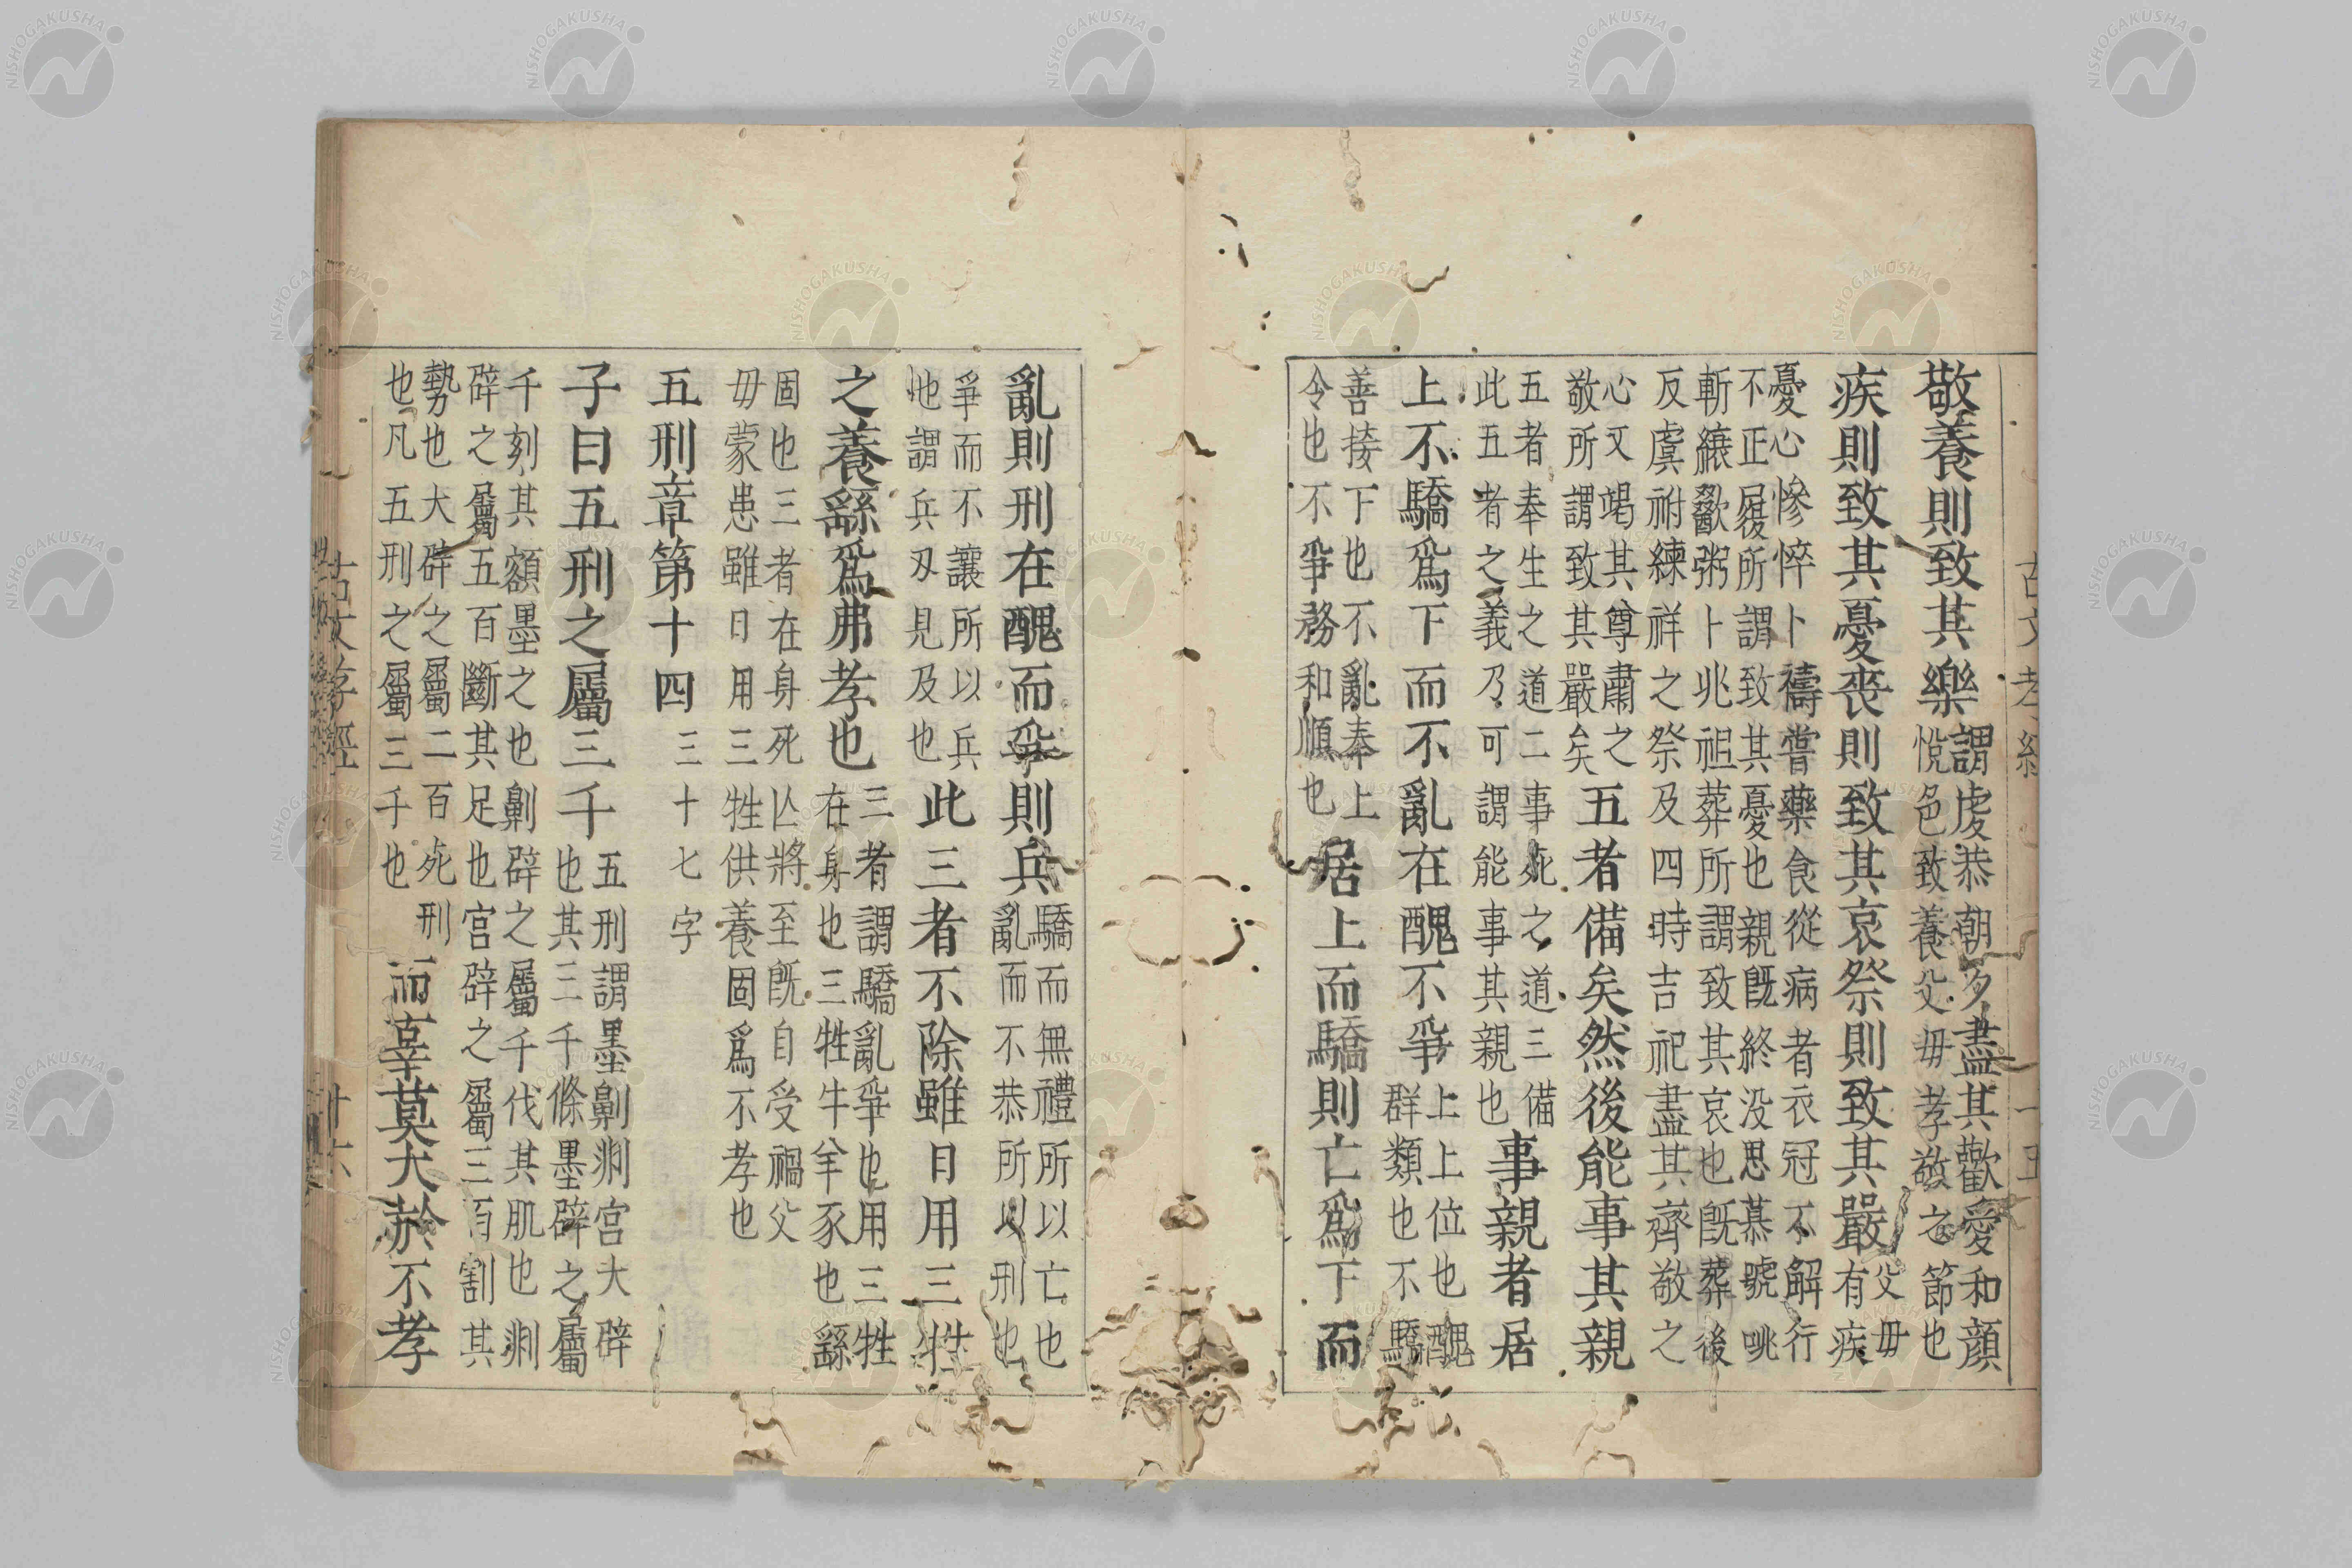 敬養則致其樂
謂虔恭朝夕盡其歡愛和顔
悅色致養父毋孝敬之節也
疾則致其憂喪則致其哀祭則致其嚴
父毋
有疾
憂心慘悴卜禱嘗藥食從病者衣冠不解行
不正履所謂致其憂也親既終没思慕號咷
斬縗歠粥卜兆祖葬所謂致其哀也既葬後
反虞祔練祥之祭及四時吉祀盡其齊敬之
心又竭其尊肅之
敬所謂致其嚴矣
五者備矣然後能事其親
五者奉生之道二事死之道三備
此五者之義乃可謂能事其親也
事親者居
上不驕爲下而不亂在醜不爭
上上位也醜
群類也不驕
善接下也不亂奉上
令也不爭務和順也
居上而驕則亡爲下而
亂則刑在醜而爭則兵
驕而無禮所以亡也
亂而不恭所以刑也
爭而不讓所以兵
也謂兵刃見及也
此三者不除雖日用三牲
之養繇爲弗孝也
三者謂驕亂爭也用三牲
在身也三牲牛羊豕也繇
固也三者在身死亾將至既自受禍父
毋蒙患雖日用三牲供養固爲不孝也
五刑章第十四
三十七字
子曰五刑之屬三千
五刑謂墨劓剕宫大辟
也其三千條墨辟之屬
千刻其額墨之也劓辟之屬千伐其肌也剕
辟之屬五百斷其足也宫辟之屬三百割其
勢也大辟之屬二百死刑
也凡五刑之屬三千也
而辜莫大於不孝
古文孝經
十六
NISHOGAKUSHA